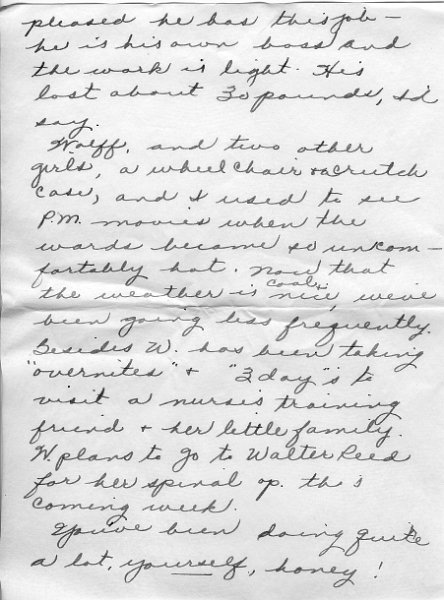 pleased he has this job —
he is his own boss and
the work is light. He's
lost about 30 pounds, I'd
say.
Wolff, and two other
girls, a wheel chair & a crutch
case, and I used to see
P.M. movies when the
wards became so uncom-
fortably hot. Now that
the weather is cool & nice, we've
been going less frequently.
Besides W. has been taking
"overnites" & "3 day"s to
visit a nurse's training
friend & her little family.
W. plans to go to Walter Reed
for her spinal op. this
coming week.
You've been doing quite
a lot, yourself, honey!